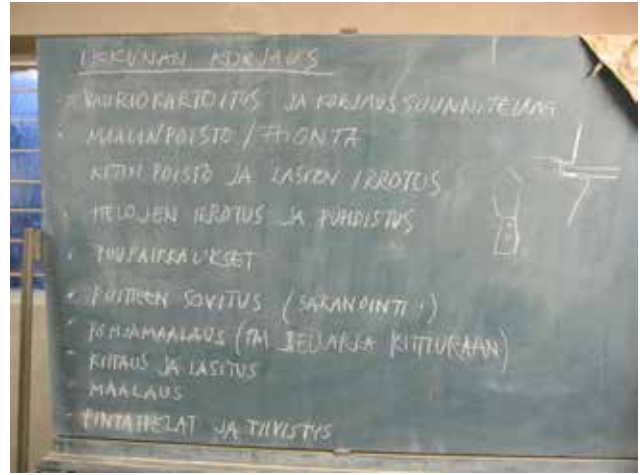 IKKUNAN KORJAUS
- VAURIOKARTOITUS JA KORJAUSSUUNNITELMA
- MAALINPOISTO / HIONTA
KITIN POISTO JA LASIEN IRROTUS
- HELOJEN IRROTUS JA PUHDISTUS
- PUUPAIKKAUKSET
- PUITTEEN SOVITUS (SARANOINTI!)
- POHJAMAALAUS (TAI KITTIURAAN)
- KITTAUS JA LASITUS
- MAALAUS
- PINTAHELAT JA TIIVISTYS